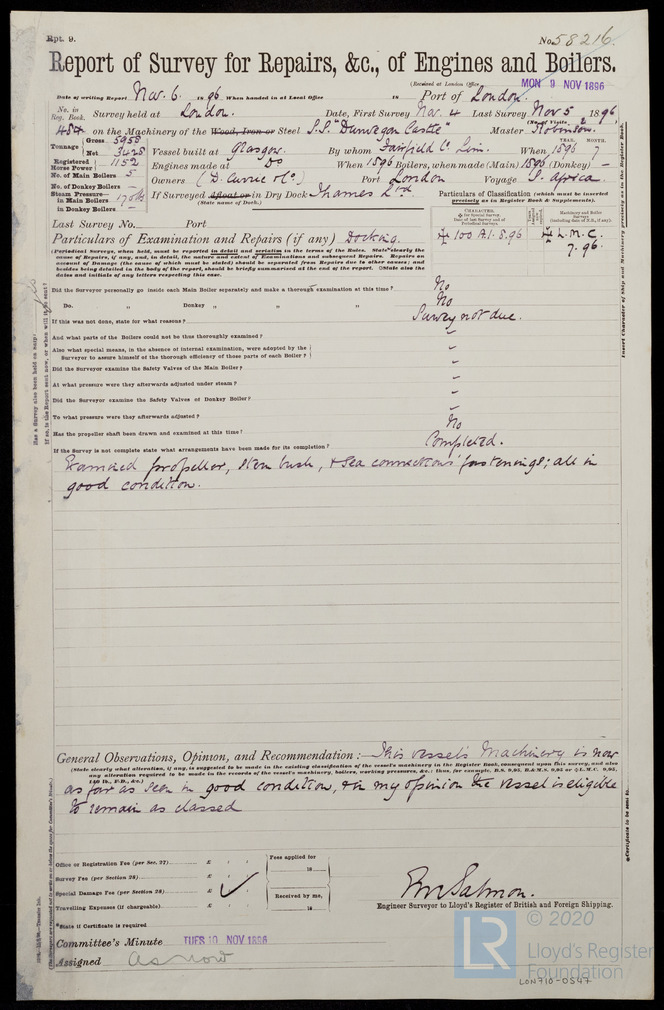 Rpt. 9.
No. 58216.
Report of Survey for Repairs, &c., of Engines and Boilers.
(Received at London Office MON 9 NOV 1896
Date of writing Report Nov. 6 1896 When handed in at Local Office 18 Port of London.
No. in Reg. Book. Survey held at London. Date, First Survey Nov. 4 Last Survey Nov 5 1896,
(No. of Visits 2)
484 on the Machinery of the Wood, Iron or Steel S.S. "Dunvegan Castle" Master Robinson.
Tonnage Gross 5958 Net 3428
Vessel built at Glasgow. By whom Fairfield Co Lim. When 1896 7
YEAR. MONTH.
Registered Horse Power 1152
Engines made at Do When 1896 Boilers, when made (Main) 1896 (Donkey) —
No. of Main Boilers 5
Owners (D. Currie & Co.) Port London Voyage S. Africa.
No. of Donkey Boilers —
Steam Pressure— in Main Boilers 170 lbs
in Donkey Boilers —
If Surveyed Afloat or in Dry Dock Thames Ltd.
(State name of Dock.)
Particulars of Classification (which must be inserted precisely as in Register Book & Supplements).
Last Survey No. Port
✠ 100 A.1. 8.96 ✠ L.M.C. 7.96.
Particulars of Examination and Repairs (if any) Docking.
(Periodical Surveys, when held, must be reported in detail and seriatim in the terms of the Rules. State clearly the
cause of Repairs, if any, and, in detail, the nature and extent of Examinations and subsequent Repairs. Repairs on
account of Damage (the cause of which must be stated) should be separated from Repairs due to other causes; and
besides being detailed in the body of the report, should be briefly summarised at the end of the report. State also the
dates and initials of any letters respecting this case.)
Did the Surveyor personally go inside each Main Boiler separately and make a thorough examination at this time? No
Do. „ Donkey „ „ „ No
If this was not done, state for what reasons? Survey not due.
And what parts of the Boilers could not be thus thoroughly examined? —
Also what special means, in the absence of internal examination, were adopted by the
Surveyor to assure himself of the thorough efficiency of those parts of each Boiler? —
Did the Surveyor examine the Safety Valves of the Main Boiler? —
At what pressure were they afterwards adjusted under steam? —
Did the Surveyor examine the Safety Valves of Donkey Boiler? —
To what pressure were they afterwards adjusted? —
Has the propeller shaft been drawn and examined at this time? No
If the Survey is not complete state what arrangements have been made for its completion? Completed.
Examined propeller, stern bush, & sea connections' fastenings; all in
good condition.
General Observations, Opinion, and Recommendation:— This vessel's Machinery is now
(State clearly what alteration, if any, is suggested to be made in the existing classification of the vessel's machinery in the Register Book, consequent upon this survey, and also
any alteration required to be made in the records of the vessel's machinery, boilers, working pressures, &c.; thus, for example, B.S. 9.95, B.&M.S. 9.95 or ✠L.M.C. 9.95,
140 lb., F.D., &c.)
as far as seen in good condition, & in my opinion the vessel is eligible
to remain as classed
Office or Registration Fee (per Sec. 27) £
Fees applied for
18
Survey Fee (per Section 28) £
Special Damage Fee (per Section 28) £
Received by me,
Travelling Expenses (if chargeable) £
18
*State if Certificate is required
E. W. Salmon.
Engineer Surveyor to Lloyd's Register of British and Foreign Shipping.
Committee's Minute TUES 10 NOV 1896
Assigned as now
Has a Survey also been held on Ship? yes
If so, is the Report sent now, or when will it be sent?
Insert Character of Ship and Machinery precisely as in the Register Book.
LR
© 2020
Lloyd's Register
Foundation
LON710-0547